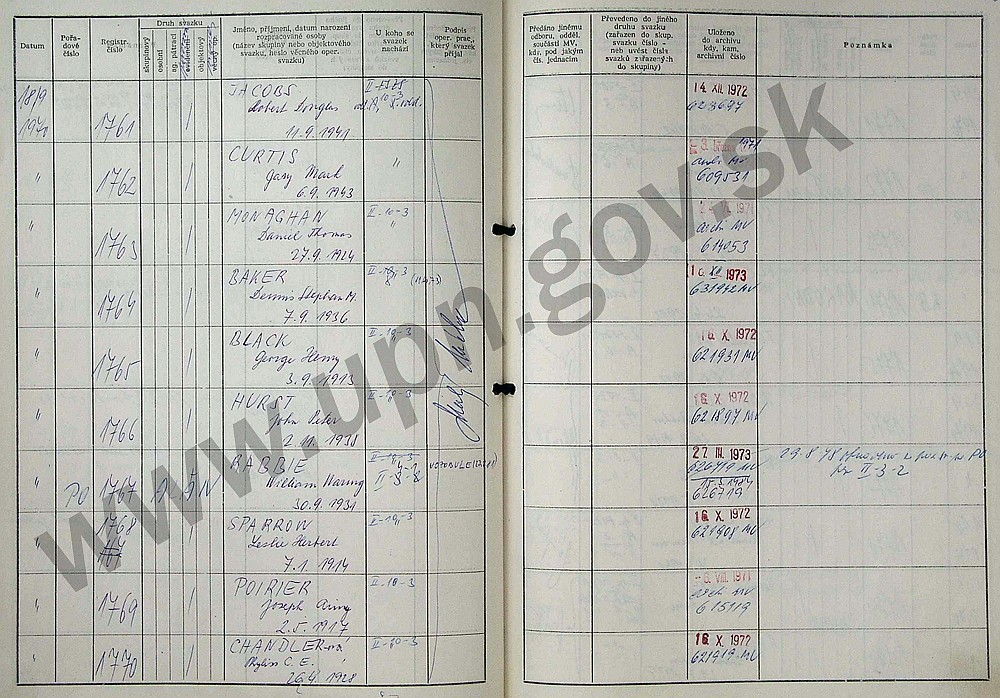 Datum
Pořa-
dové
číslo
Registr.
číslo
Druh svazku
skupinový
osobní
ag. pátrací
objektový
Jméno, příjmení, datum narození
rozpracované osoby
(název skupiny nebo objektového
svazku, heslo věcného oper.
svazku)
U koho se
svazek
nachází
Podpis
oper. prac.,
který svazek
přijal
Předáno jinému
odboru, odděl.
součásti MV.
kdy, pod jakým
čís. jednacím
Převedeno do jiného
druhu svazku
(zařazen do skup.
svazku číslo -
neb uvést čísla
svazků zařazených
do skupiny)
Uloženo
do archivu
kdy, kam,
archivní číslo
Poznámka
18/9
1970
1761
JACOBS
Robert Douglas
11.9.1941
14. XII. 1972
623697
"
1762
CURTIS
Gary Mark
6.9.1943
"
1971
609531
"
1763
MONAGHAN
Daniel Thomas
27.9.1924
II-10-3
"
1971
arch MV
614053
"
1764
BAKER
Dennis Stephan M.
7.9.1936
II-10-3
1973
631942 MV
"
1765
BLACK
George Henry
3.9.1913
II-10-3
16. X. 1972
621931 MV
"
1766
HURST
John Peter
2.11.1938
II-10-3
16. X. 1972
621897 MV
"
PO
1767
A
A
N
RABBIE
William Waring
30.9.1931
II-10-3
27. III. 1973
626719 MV
626719
29.8.78
II-3-2
"
1768
SPARROW
Leslie Herbert
7.1.1914
II-10-3
16. X. 1972
621908 MV
"
1769
POIRIER
Joseph
2.5.1917
II-10-3
-6. VIII. 1971
arch MV
615119
"
1770
CHANDLER-ová
Phyliss C. E.
26.4.1928
II-10-3
16. X. 1972
621919 MV
www.upn.gov.sk